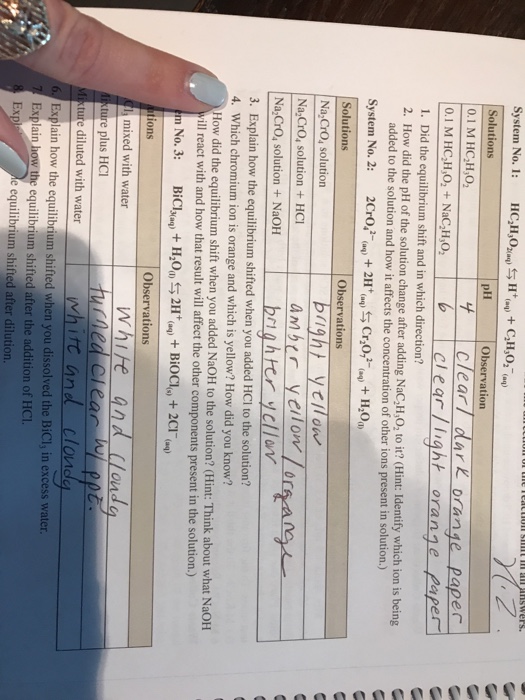 in answers.
71.2
System No. 1: HC₂H₃O₂(aq) ⇆ H⁺(aq) + C₂H₃O₂⁻(aq)
Solutions pH Observation
0.1 M HC₂H₃O₂ 4 clear/ dark orange paper
0.1 M HC₂H₃O₂ + NaC₂H₃O₂ 6 clear/light orange paper
1. Did the equilibrium shift and in which direction?
2. How did the pH of the solution change after adding NaC₂H₃O₂ to it? (Hint: Identify which ion is being
added to the solution and how it affects the concentration of other ions present in solution.)
System No. 2: 2CrO₄²⁻(aq) + 2H⁺(aq) ⇆ Cr₂O₇²⁻(aq) + H₂O(l)
Solutions Observations
Na₂CrO₄ solution bright yellow
Na₂CrO₄ solution + HCl amber yellow/orange
Na₂CrO₄ solution + NaOH brighter yellow
3. Explain how the equilibrium shifted when you added HCl to the solution?
4. Which chromium ion is orange and which is yellow? How did you know?
How did the equilibrium shift when you added NaOH to the solution? (Hint: Think about what NaOH
will react with and how that result will affect the other components present in the solution.)
em No. 3: BiCl₃(aq) + H₂O(l) ⇆ 2H⁺(aq) + BiOCl(s) + 2Cl⁻(aq)
utions Observations
mixed with water White and cloudy
Mixture plus HCl turned clear w/ ppt.
Mixture diluted with water white and cloudy
6. Explain how the equilibrium shifted when you dissolved the BiCl₃ in excess water.
7. Explain how the equilibrium shifted after the addition of HCl.
8. Expl e equilibrium shifted after dilution.